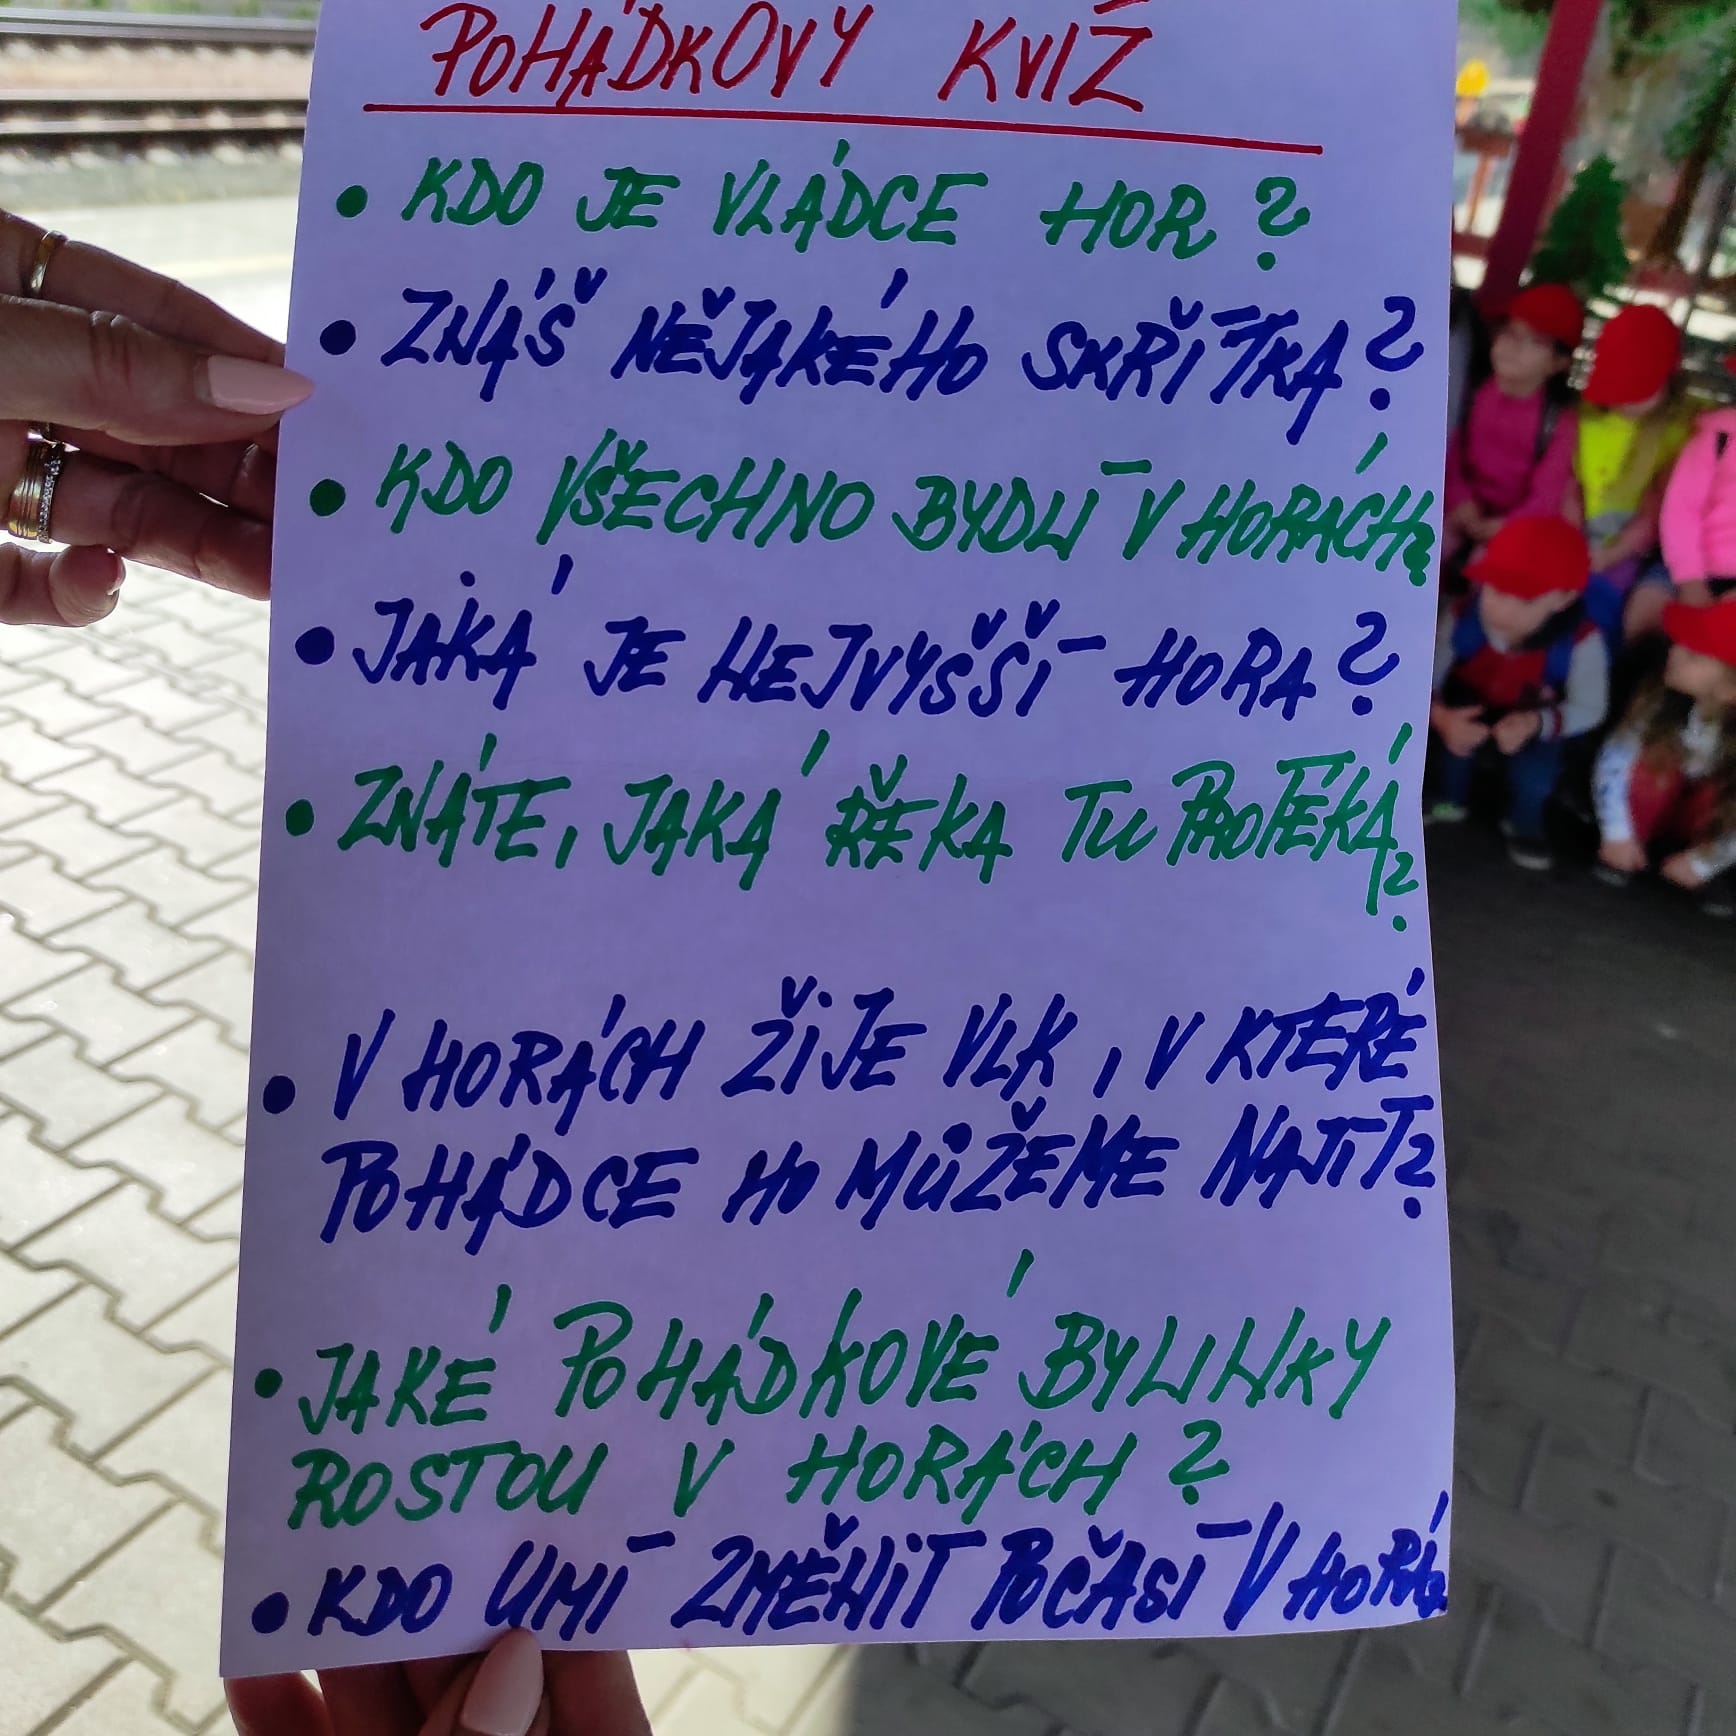 POHÁDKOVÝ KVÍZ
• KDO JE VLÁDCE HOR?
• ZNÁŠ NĚJAKÉHO SKŘÍTKA?
• KDO VŠECHNO BYDLÍ V HORÁCH?
• JAKÁ JE NEJVYŠŠÍ HORA?
• ZNÁTE, JAKÁ ŘEKA TU PROTÉKÁ?
• V HORÁCH ŽIJE VLK, V KTERÉ
POHÁDCE HO MŮŽEME NAJÍT?
• JAKÉ POHÁDKOVÉ BYLINKY
ROSTOU V HORÁCH?
• KDO UMÍ ZMĚNIT POČASÍ V HORÁ?